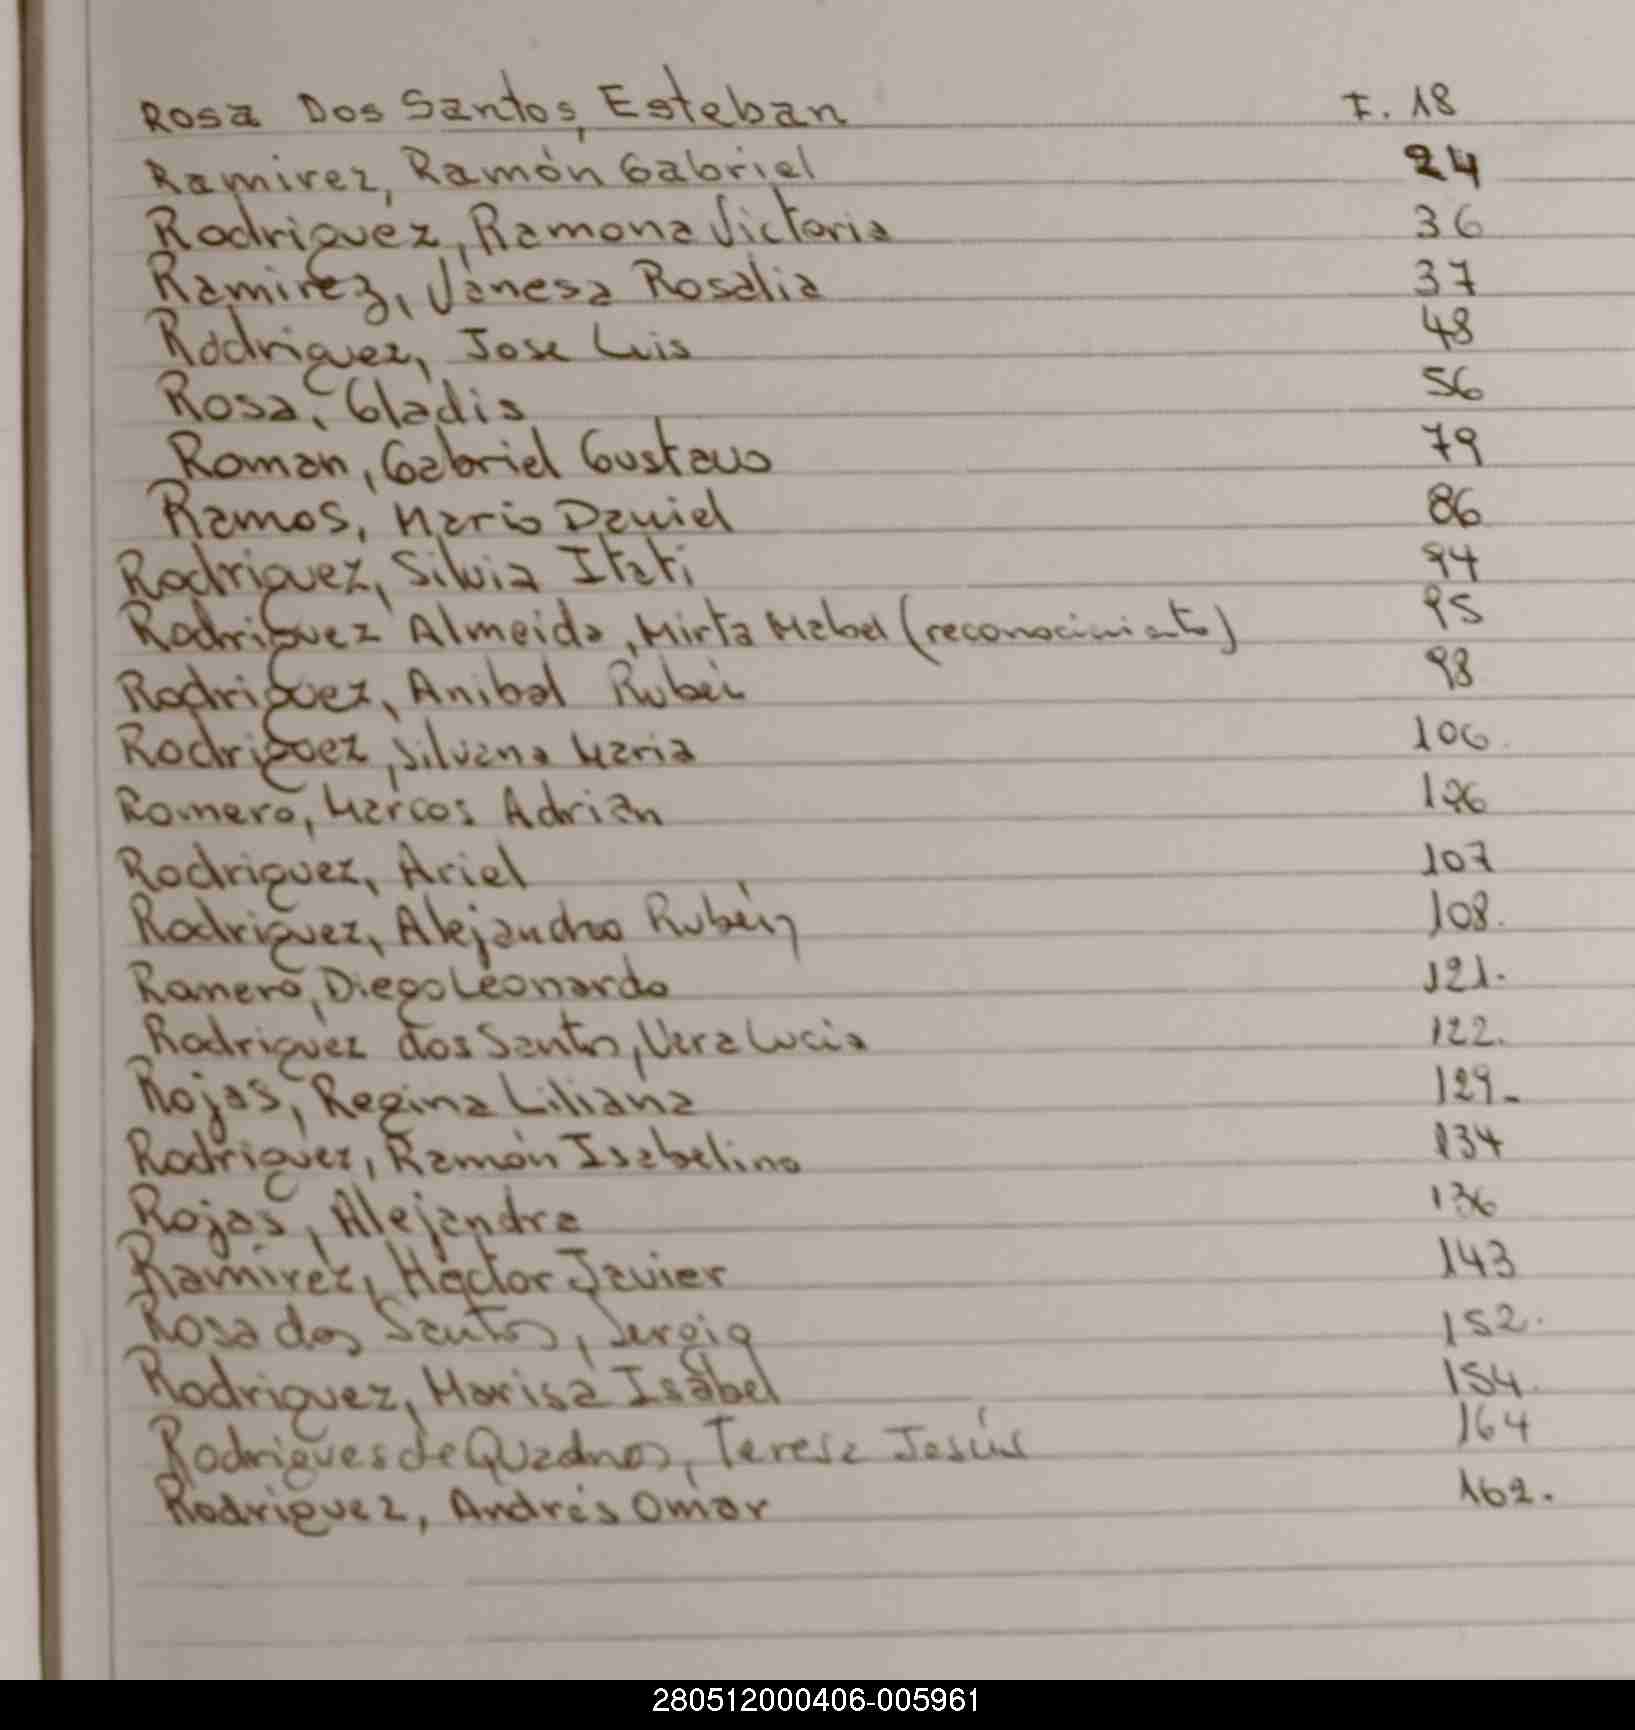 Rosa Dos Santos, Esteban F. 18
Ramirez, Ramón Gabriel 24
Rodriguez, Ramona Victoria 36
Ramirez, Vanesa Rosalia 37
Rodriguez, Jose Luis 48
Rosa, Gladis 56
Roman, Gabriel Gustavo 79
Ramos, Mario Daniel 86
Rodriguez, Silvia Itati 94
Rodriguez Almeida, Mirta Mabel (reconocimiento) 95
Rodriguez, Anibal Ruben 98
Rodriguez, Silvana Maria 106.
Romero, Marcos Adrián
Rodriguez, Ariel 107
Rodriguez, Alejandro Rubén 108.
Romero, Diego Leonardo 121.
Rodriguez dos Santos, Vera Lucia 122.
Rojas, Regina Liliana 129.-
Rodriguez, Ramón Isabelino 134
Rojas, Alejandra 136
Ramirez, Héctor Javier 143
Rosa dos Santos, Sergio 152.
Rodriguez, Marisa Isabel 154.
Rodrigues de Quadros, Teresa Jesús 164
Rodriguez, Andrés Omar 162.
280512000406-005961